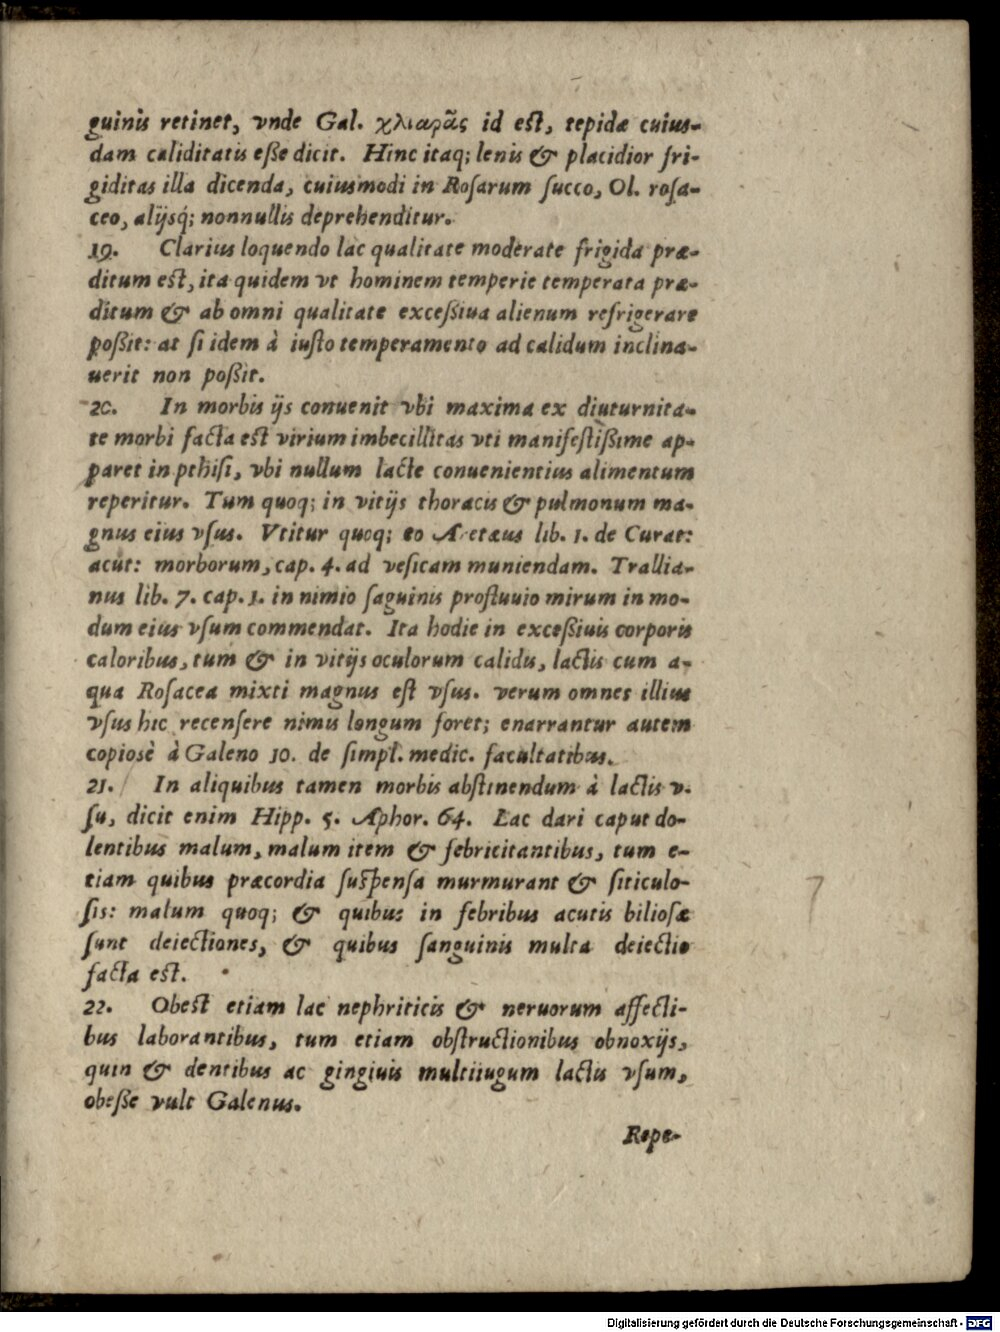 guinis retinet, vnde Gal. χλιαρᾶς id est, tepidæ cuius-
dam caliditatis eße dicit. Hinc itaq; lenis & placidior fri-
giditas illa dicenda, cuiusmodi in Rosarum succo, Ol. rosa-
ceo, alijsq́; nonnullis deprehenditur.
19. Clarius loquendo lac qualitate moderate frigida præ-
ditum est, ita quidem vt hominem temperie temperata præ-
ditum & ab omni qualitate exceßiua alienum refrigerare
poßit: at si idem à iusto temperamento ad calidum inclina-
uerit non poßit.
20. In morbis ijs conuenit vbi maxima ex diuturnita-
te morbi facta est virium imbecillitas vti manifestißime ap-
paret in pthisi, vbi nullum lacte conuenientius alimentum
reperitur. Tum quoq; in vitijs thoracis & pulmonum ma-
gnus eius vsus. Vtitur quoq; eo Aretæus lib. 1. de Curat:
acut: morborum, cap. 4. ad vesicam muniendam. Trallia-
nus lib. 7. cap. 1. in nimio saguinis profluuio mirum in mo-
dum eius vsum commendat. Ita hodie in exceßiuis corporis
caloribus, tum & in vitijs oculorum calidis, lactis cum a-
qua Rosacea mixti magnus est vsus. verum omnes illius
vsus hic recensere nimis longum foret; enarrantur autem
copiosè à Galeno 10. de simpl. medic. facultatibus.
21. In aliquibus tamen morbis abstinendum à lactis v-
su, dicit enim Hipp. 5. Aphor. 64. Lac dari caput do-
lentibus malum, malum item & febricitantibus, tum e-
tiam quibus præcordia suspensa murmurant & siticulo-
sis: malum quoq; & quibus in febribus acutis biliosæ
sunt deiectiones, & quibus sanguinis multa deiectio
facta est.
22. Obest etiam lac nephriticis & neruorum affecti-
bus laborantibus, tum etiam obstructionibus obnoxijs,
quin & dentibus ac gingiuis multiiugum lactis vsum,
obeße vult Galenus.
Repe-
7
Digitalisierung gefördert durch die Deutsche Forschungsgemeinschaft - DFG